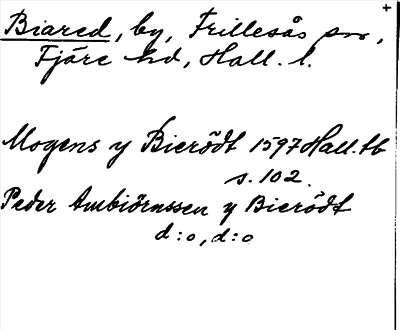 Biared, by, Frillesås sn,
Fjäre hd, Hall. l.
Mogens y Bierödt 1597 Hall. tb
s. 102.
Peder Ambiörnssen y Bierödt
d:o, d:o